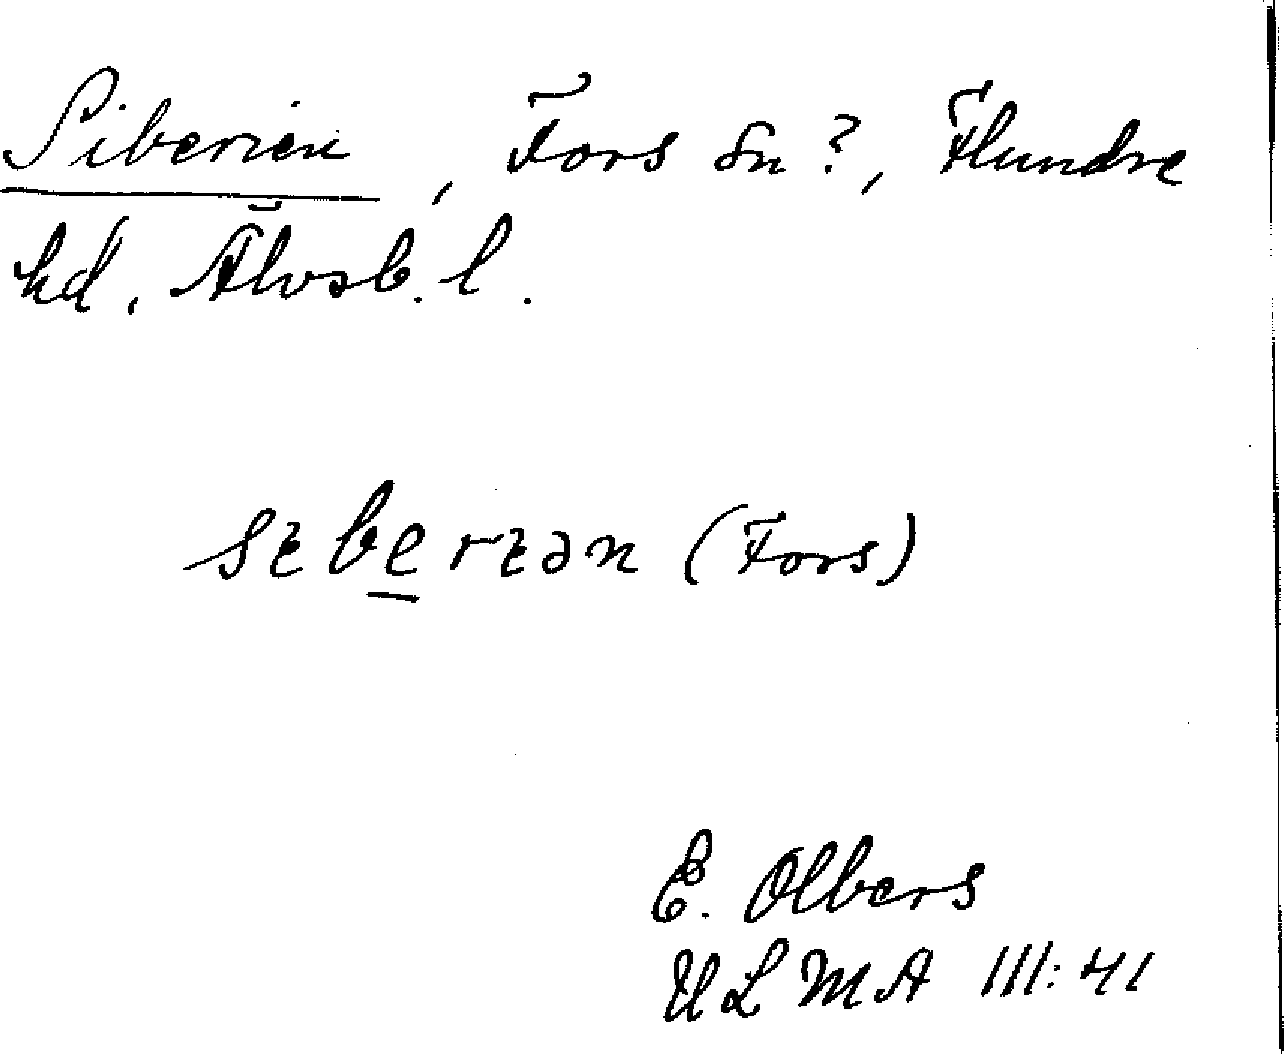 Siberien, Fors sn?, Flundre
hd. Älvsb. l.
sɩberɩən (Fors)
E. Olbers
ULMA III:41